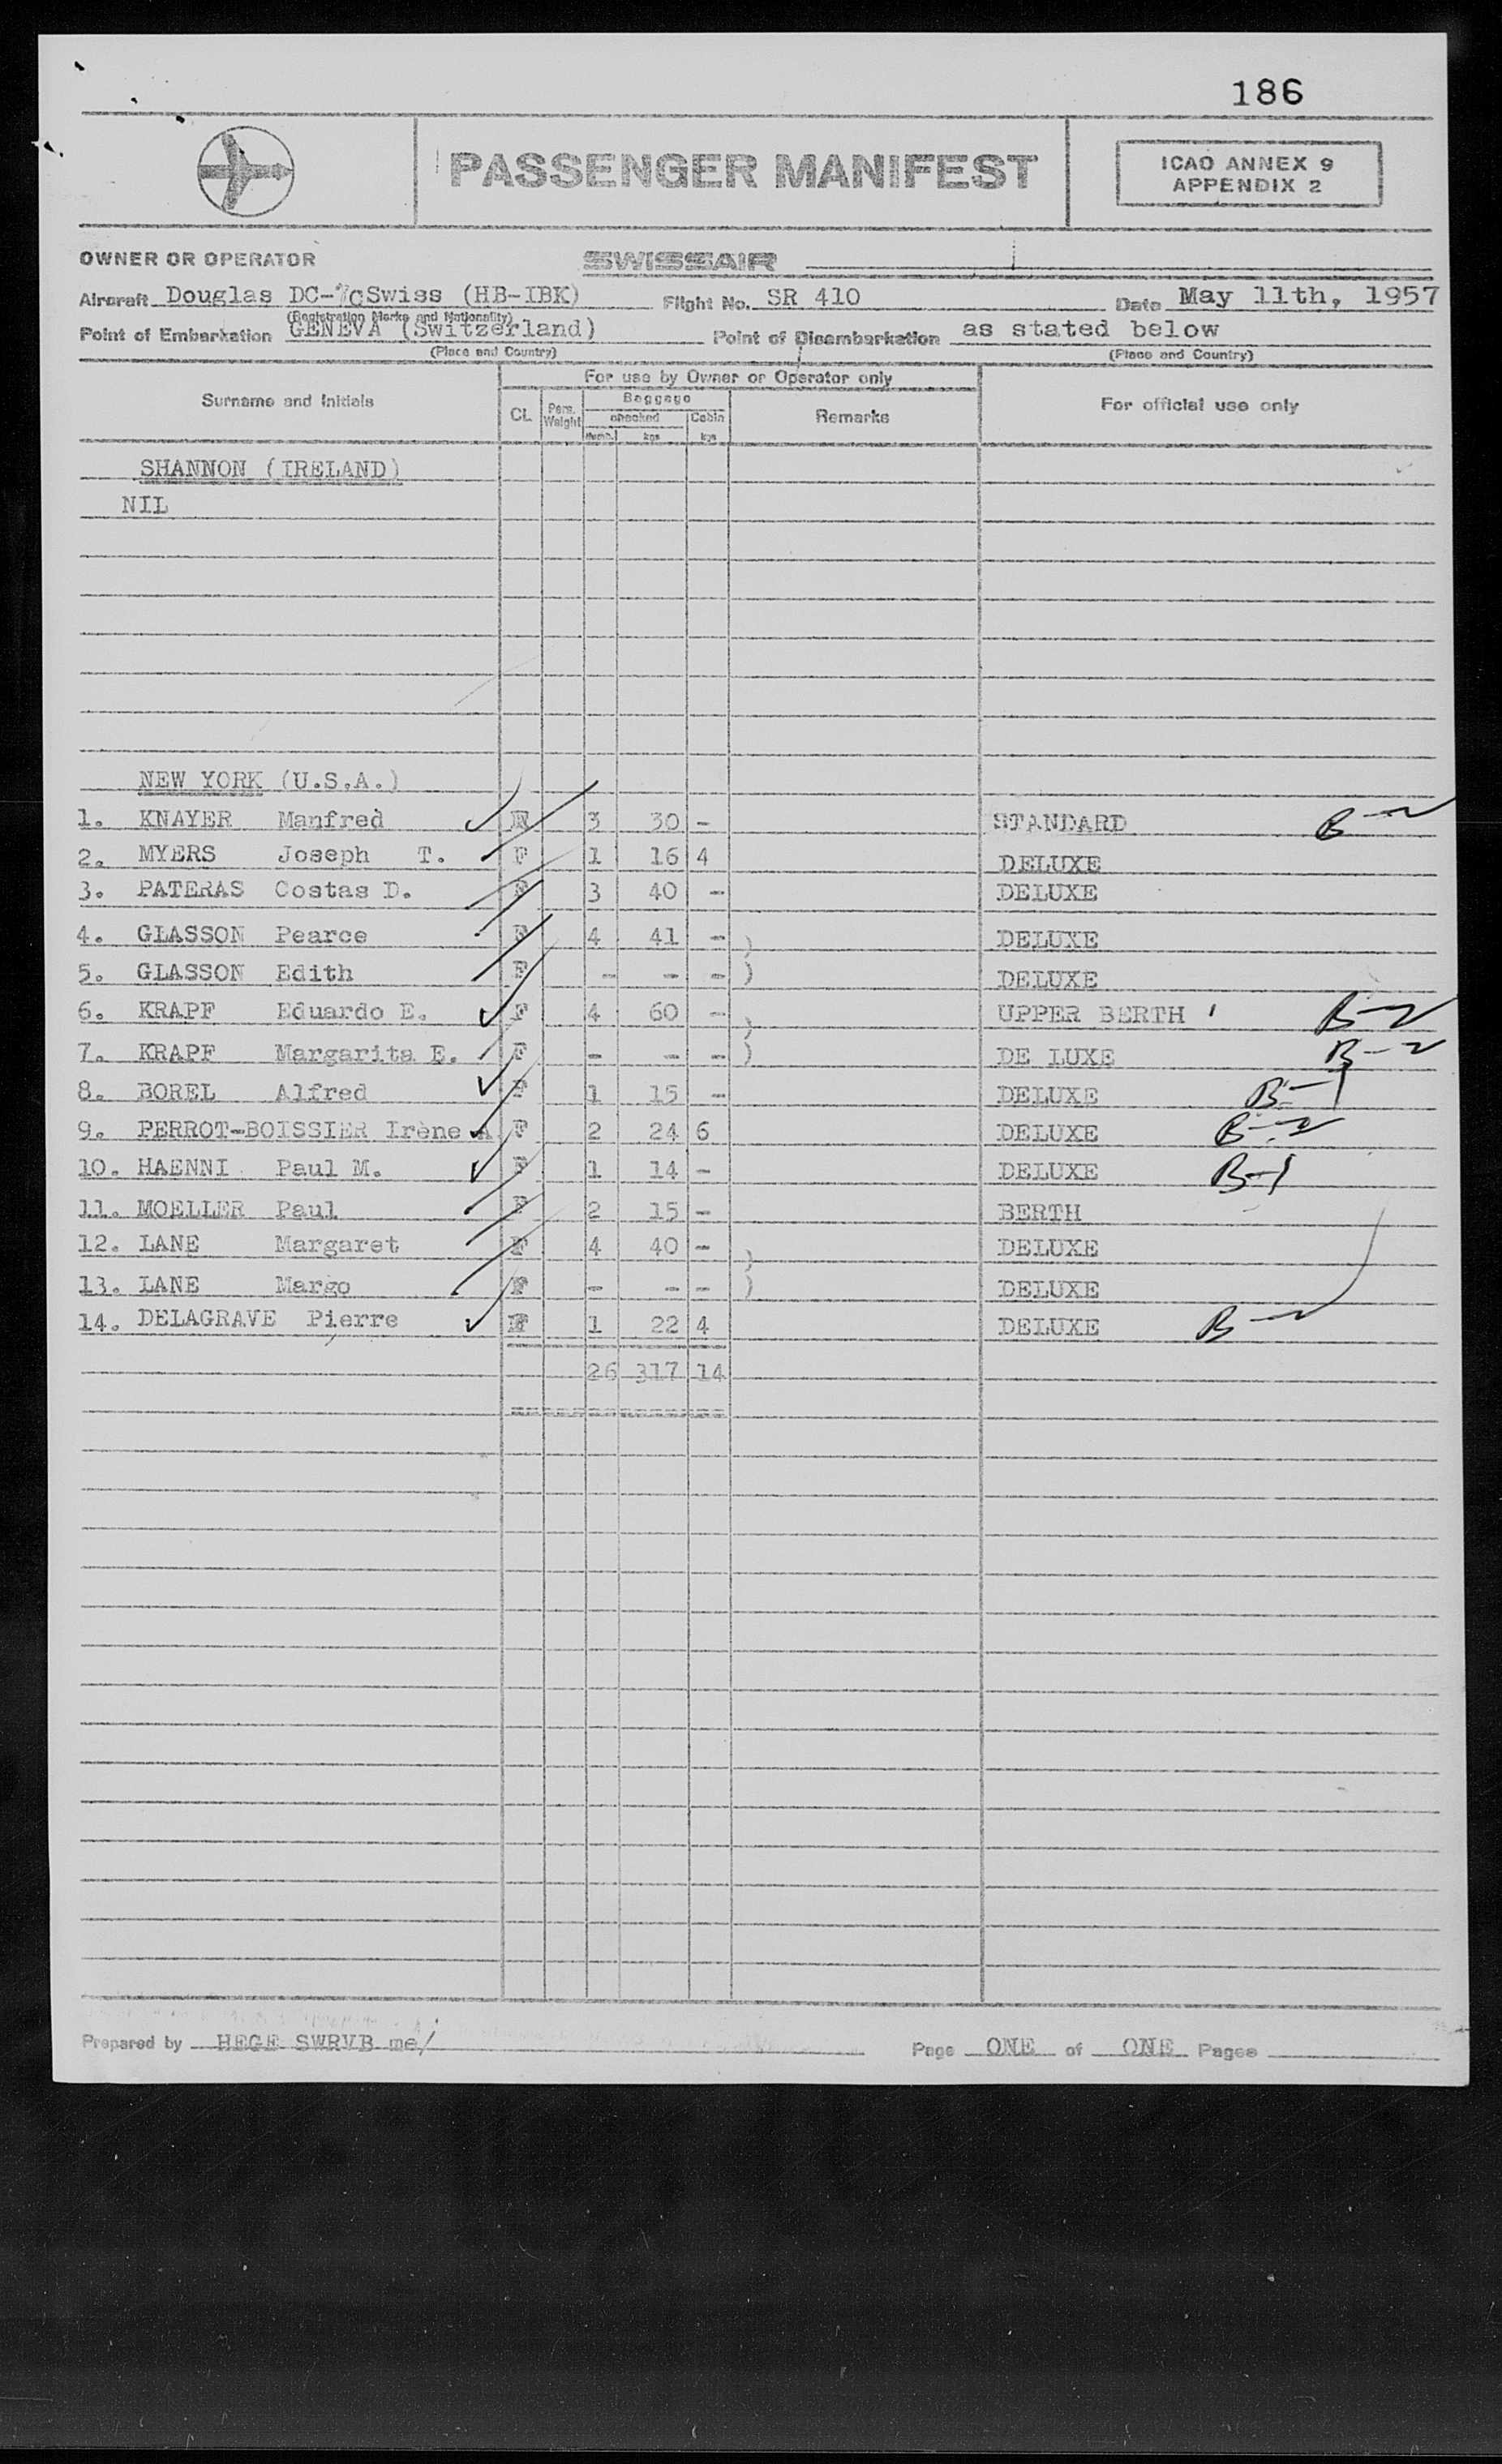 186
PASSENGER MANIFEST
ICAO ANNEX 9
APPENDIX 2
OWNER OR OPERATOR SWISSAIR
Aircraft Douglas DC-7C Swiss (HB-IBK) Flight No. SR 410 Date May 11th, 1957
(Registration Marks and Nationality)
Point of Embarkation GENEVA (Switzerland) Point of Disembarkation as stated below
(Place and Country) (Place and Country)
For use by Owner or Operator only
Surname and Initials CL Pers. Weight Baggage checked Numb. kgs Cabin kgs Remarks For official use only
SHANNON (IRELAND)
NIL
NEW YORK (U.S.A.)
1. KNAYER Manfred 3 30 - STANDARD B-2
2. MYERS Joseph T. F 1 16 4 DELUXE
3. PATERAS Costas D. F 3 40 - DELUXE
4. GLASSON Pearce F 4 41 - ) DELUXE
5. GLASSON Edith F - - - ) DELUXE
6. KRAPF Eduardo E. F 4 60 - ) UPPER BERTH B-2
7. KRAPF Margarita E. F - - - ) DE LUXE B-2
8. BOREL Alfred F 1 15 - DELUXE B-1
9. PERROT-BOISSIER Irène A. F 2 24 6 DELUXE B-2
10. HAENNI Paul M. F 1 14 - DELUXE B-1
11. MOELLER Paul F 2 15 - BERTH
12. LANE Margaret F 4 40 - ) DELUXE
13. LANE Margo F - - - ) DELUXE
14. DELAGRAVE Pierre F 1 22 4 DELUXE B-2
26 317 14
Prepared by HEGE SWRVB me/ Page ONE of ONE Pages